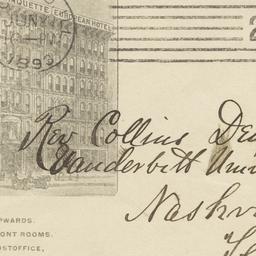 QUETTE EUROPEAN HOTEL
JUN 24
-PM
1893
2
Rev Collins De
Vanderbilt Uni
Nashv
PWARDS.
ONT ROOMS.
OSTOFFICE,